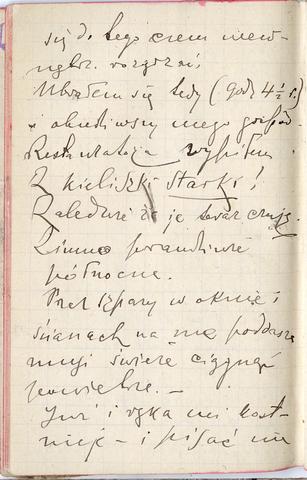 się do tego czem wew-
rozgrzać.
Ubrałem się tedy (godz 4 1/2 r.)
i obudziwszy mego gospod.
Restauratora wypiłem
2 kieliszki starki!
Zaledwie że je teraz czuję.
Zimno prawdziwie
północne.
Przez szpary w oknie i
ścianach na me poddasze
musi świeże ciągnąć
powietrze. —
Już i ręka mi kost-
nieje – i pisać nie